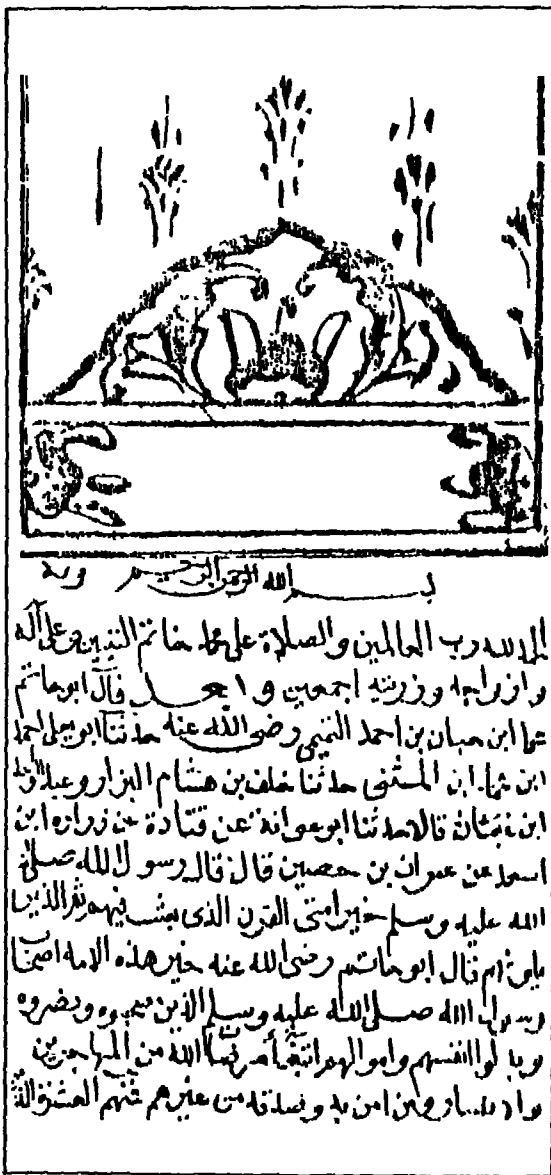 بسم الله الرحمن الرحيم وبه
الحمد لله رب العالمين والصلاة على محمد خاتم النبيين وعلى آله
وازواجه وذريته اجمعين و بعد قال ابو حاتم
محمد ابن حبان بن احمد التميمي رضى الله عنه حدثنا ابو يعلى احمد
ابن المثنى حدثنا خلف بن هشام البزار وعبد الواحد
ابن قالا حدثنا ابو عوانة عن قتادة عن زراره ابن
عن عمران بن حصين قال قال رسول الله صلى
الله عليه وسلم خير امتى القرن الذى بعثت فيهم ثم الذين
قال ابو حاتم رضى الله عنه خير هذه الامه اصحاب
رسول الله صلى الله عليه وسلم الذين ونصروه
انفسهم واموالهم الله من المهاجرين
ومن امن به وصدقه من غيرهم